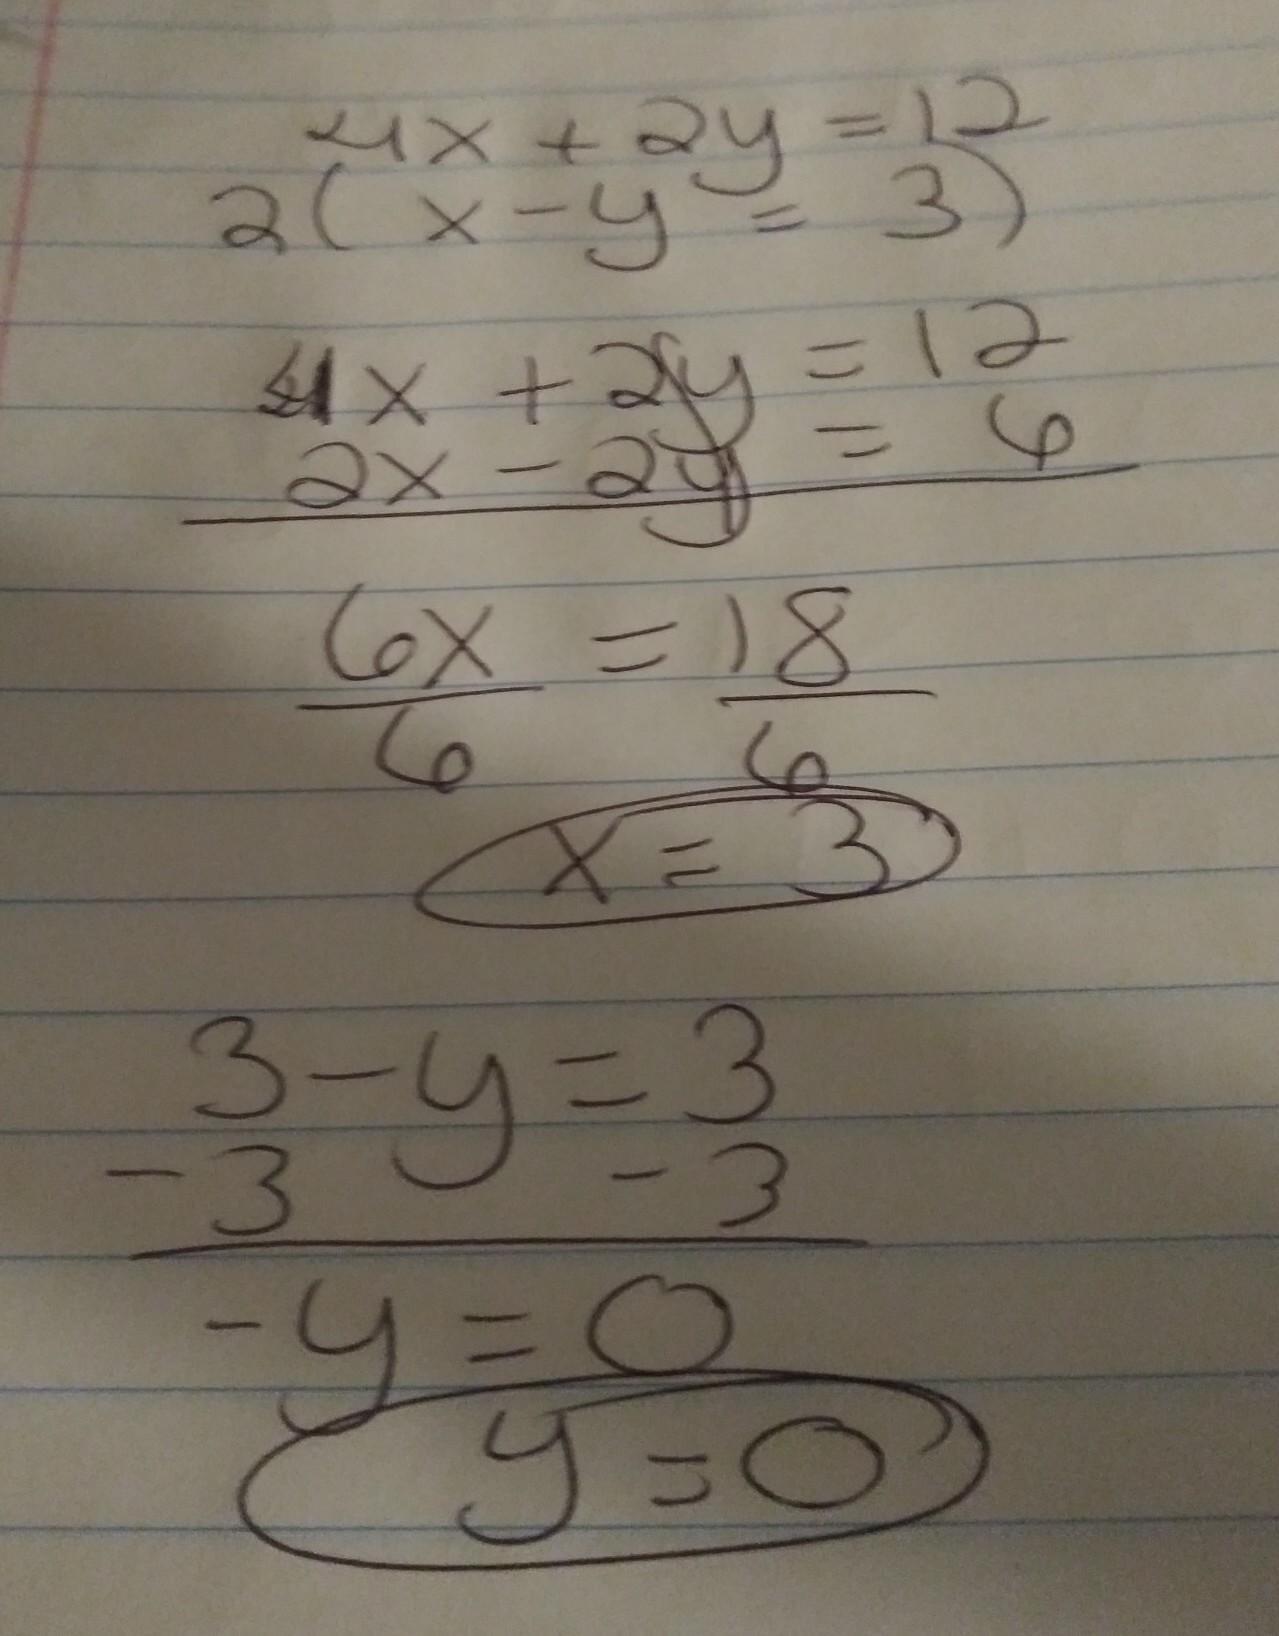 4x + 2y = 12
2( x - y = 3)
4x + 2y = 12
2x - 2y = 6
6x = 18
6 6
x = 3
3 - y = 3
-3 -3
-y = 0
y = 0